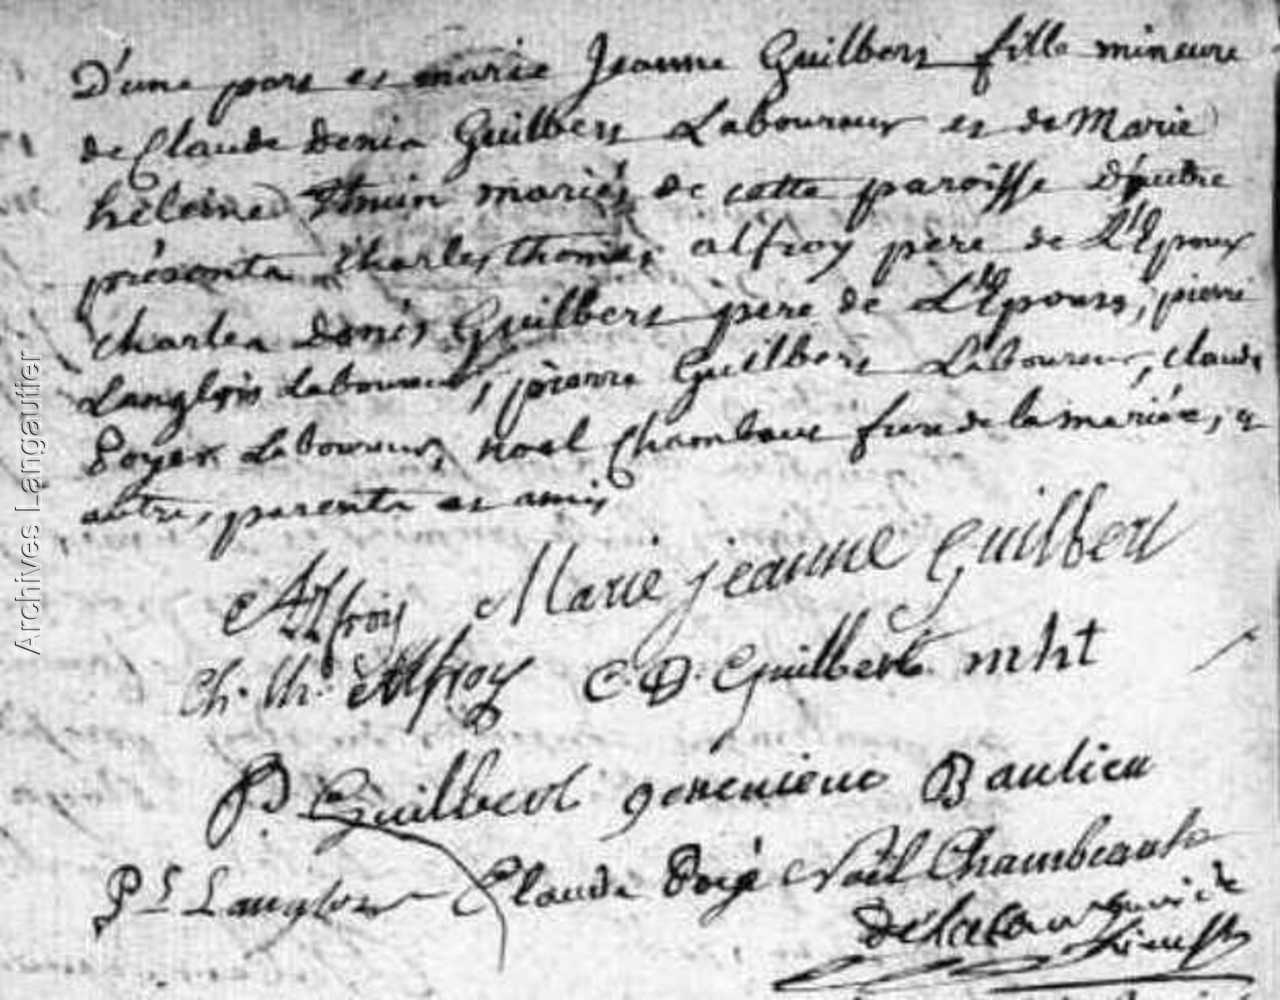 D'une part et marie Jeanne Guilbert fille mineure
de Claude Denis Guilbert Laboureur et de Marie
héleine mariés de cette paroisse d'autre
présents Charles thomas alfroy père de L'Epoux
charles denis Guilbert père de L'Epouse, pierre
Langlois Laboureur, pierre Guilbert Laboureur, claude
Doyer Laboureur, noel Chambaut frere de la mariée, et
autres parents et amis
Alfroy Marie jeanne Guilbert
Ch. th. Alfroy C. D. Guilbert mht
P. Guilbert genevieve Baulieu
P. Langlois Claude Doyé Noël Chambeaut
Archives Langautier